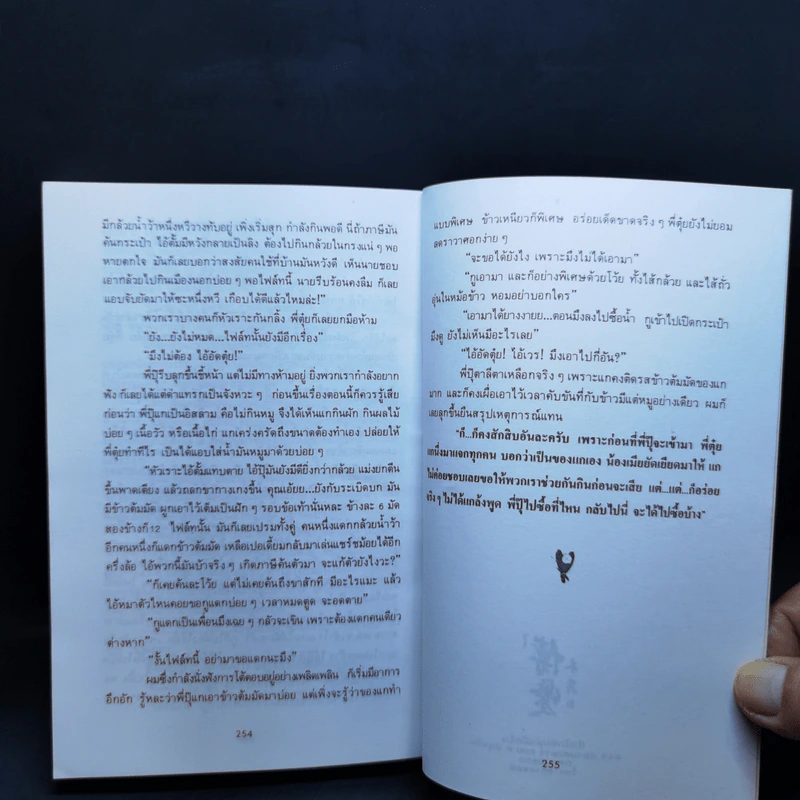 มีกล้วยน้ำว้าหนึ่งหวีวางทับอยู่ เพิ่งเริ่มสุก กำลังกินพอดี นี่ถ้าภาษีมัน
ค้นกระเป๋า ไอ้ตั้มมีหวังกลายเป็นลิง ต้องไปกินกล้วยในกรงแน่ ๆ พอ
หายตกใจ มันก็เลยบอกว่าสงสัยคนใช้ที่บ้านมันหวังดี เห็นนายชอบ
เอากล้วยไปกินเมืองนอกบ่อย ๆ พอไฟล์ทนี้ นายรีบร้อนคงลืม ก็เลย
แอบจับยัดมาให้ซะหนึ่งหวี เกือบได้ดีแล้วไหมล่ะ!”
พวกเราบางคนก็หัวเราะกันกลิ้ง พี่ตุ๋ยก็เลยยกมือห้าม
“ยัง...ยังไม่หมด...ไฟล์ทนั้นยังมีอีกเรื่อง”
“มึงไม่ต้อง ไอ้อัดตุ๋ย!”
พี่ปุ๊รีบลุกขึ้นชี้หน้า แต่ไม่มีทางห้ามอยู่ ยิ่งพวกเรากำลังอยาก
ฟัง ก็เลยได้แต่ด่าแทรกเป็นจังหวะ ๆ ก่อนขึ้นเรื่องตอนนี้ก็ควรรู้เสีย
ก่อนว่า พี่ปุ๊แกเป็นอิสลาม คือไม่กินหมู จึงได้เห็นแกกินผัก กินผลไม้
บ่อย ๆ เนื้อวัว หรือเนื้อไก่ แกเคร่งครัดถึงขนาดต้องทำเอง ปล่อยให้
พี่ตุ๋ยทำทีไร เป็นได้แอบใส่น้ำมันหมูมาด้วยบ่อย ๆ
“หัวเราะไอ้ตั้มแทบตาย ไอ้ปุ๊มันยังมีดียิ่งกว่ากล้วย แม่งยกตีน
ขึ้นพาดเตียง แล้วถลกขากางเกงขึ้น คุณเอ้ยย...ยังกับระเบิดบก มัน
มีข้าวต้มมัด ผูกเอาไว้เต็มเป็นผัก ๆ รอบข้อเท้านั่นหละ ข้างละ 6 มัด
สองข้างก็ 12 ไฟล์ทนั้น มันก็เลยเปรมทั้งคู่ คนหนึ่งแดกกล้วยน้ำว้า
อีกคนหนึ่งก็แดกข้าวต้มมัด เหลือเปอเดี้ยมกลับมาเล่นแชร์ชม้อยได้อีก
ครึ่งล้อ ไอ้พวกนี้มันบ้าจริง ๆ เกิดภาษีค้นตัวมา จะแก้ตัวยังไงวะ?”
“ก็เคยค้นละโว้ย แต่ไม่เคยค้นถึงขาสักที มีอะไรแมะ แล้ว
ไอ้หมาตัวไหนคอยขอกูแดกบ่อย ๆ เวลาหมดตูด จะอดตาย”
“กูแดกเป็นเพื่อนมึงเฉย ๆ กลัวจะเขิน เพราะต้องแดกคนเดียว
ต่างหาก”
“งั้นไฟล์ทนี้ อย่ามาขอแดกนะมึง”
ผมซึ่งกำลังนั่งฟังการโต้ตอบอยู่อย่างเพลิดเพลิน ก็เริ่มมีอาการ
อึกอัก รู้หละว่าพี่ปุ๊แกเอาข้าวต้มมัดมาบ่อย แต่เพิ่งจะรู้ว่าของแกทำ
254
แบบพิเศษ ข้าวเหนียวก็พิเศษ อร่อยเด็ดขาดจริง ๆ พี่ตุ๋ยยังไม่ยอม
ลดราวาศอกง่าย ๆ
“จะขอได้ยังไง เพราะมึงไม่ได้เอามา”
“กูเอามา และก็อย่างพิเศษด้วยโว้ย ทั้งไส้กล้วย และไส้ถั่ว
อุ่นในหม้อข้าว หอมอย่าบอกใคร”
“เอามาได้ยางงายย...ตอนมึงลงไปซื้อน้ำ กูเข้าไปเปิดกระเป๋า
มึงดู ยังไม่เห็นมีอะไรเลย”
“ไอ้อัดตุ๋ย! ไอ้เวร! มึงเอาไปกี่อัน?”
พี่ปุ๊ตาลีตาเหลือกจริง ๆ เพราะแกคงติดรสข้าวต้มมัดของแก
มาก และก็คงเผื่อเอาไว้เวลาคับขันที่กับข้าวมีแต่หมูอย่างเดียว ผมก็
เลยลุกขึ้นยืนสรุปเหตุการณ์แทน
“ก็...ก็คงสักสิบอันละครับ เพราะก่อนที่พี่ปุ๊จะเข้ามา พี่ตุ๋ย
แกนึ่งมาแจกทุกคน บอกว่าเป็นของแกเอง น้องเมียยัดเยียดมาให้ แก
ไม่ค่อยชอบเลยขอให้พวกเราช่วยกันกินก่อนจะเสีย แต่...แต่...ก็อร่อย
จริงๆ ไม่ได้แกล้งพูด พี่ปุ๊ไปซื้อที่ไหน กลับไปนี่ จะได้ไปซื้อบ้าง”
255